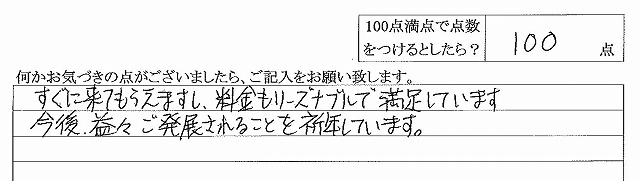 100点満点で点数
をつけるとしたら？ 100 点
何かお気づきの点がございましたら、ご記入をお願い致します。
すぐに来てもらえますし、料金もリーズナブルで満足しています
今後、益々ご発展されることを祈念しています。